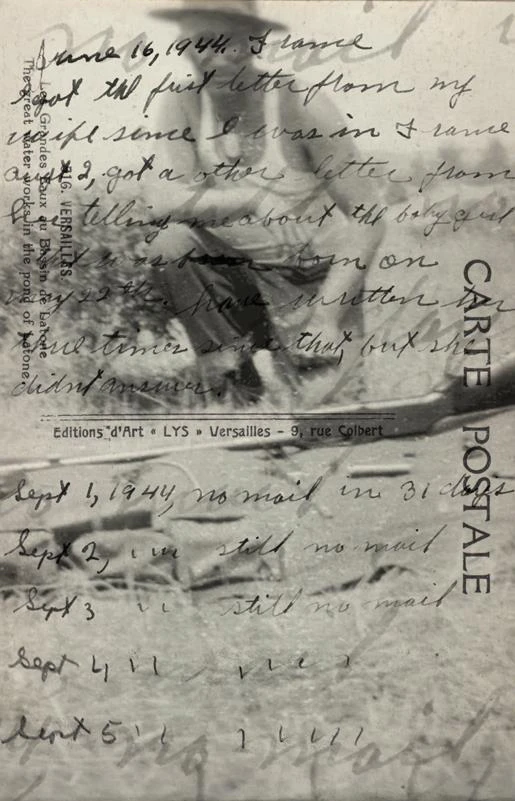 June 16, 1944. France
I got the first letter from my
wife since I was in France
aust 2, got a other letter from
telling me about the baby girl
that was been born on
22th. have written her
times since that, but she
didnt answer.
Sept 1, 1944, no mail in 31 days
Sept 2, " " still no mail
Sept 3 " " still no mail
Sept 4 " " " " " "
Sept 5 " " " " " " "
no mail
CARTE POSTALE
Editions d'Art « LYS » Versailles - 9, rue Colbert
VERSAILLES
Les Grandes Eaux du Bassin de Latone
The great water works in the pond of Latone